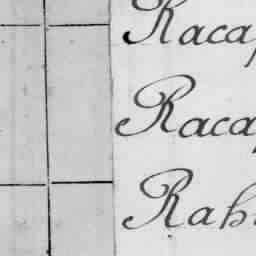 Racap
Racap
Rahi